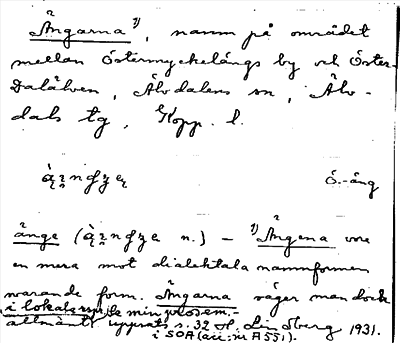 Ängarna 1), namn på området
mellan Östermyckelängs by och Öster-
Dalälven, Älvdalens sn, Älv-
dals tg, Kopp. l.
Ö.-äng
änge ( n.) – 1) Ängena vore
en mera mot dialektala namnformen
svarande form. Ängarna säger man dock
i lokalspråk min
allmänt uppsats s. 32 H. Lindberg 1931.
i SOA (acc: nr A551).